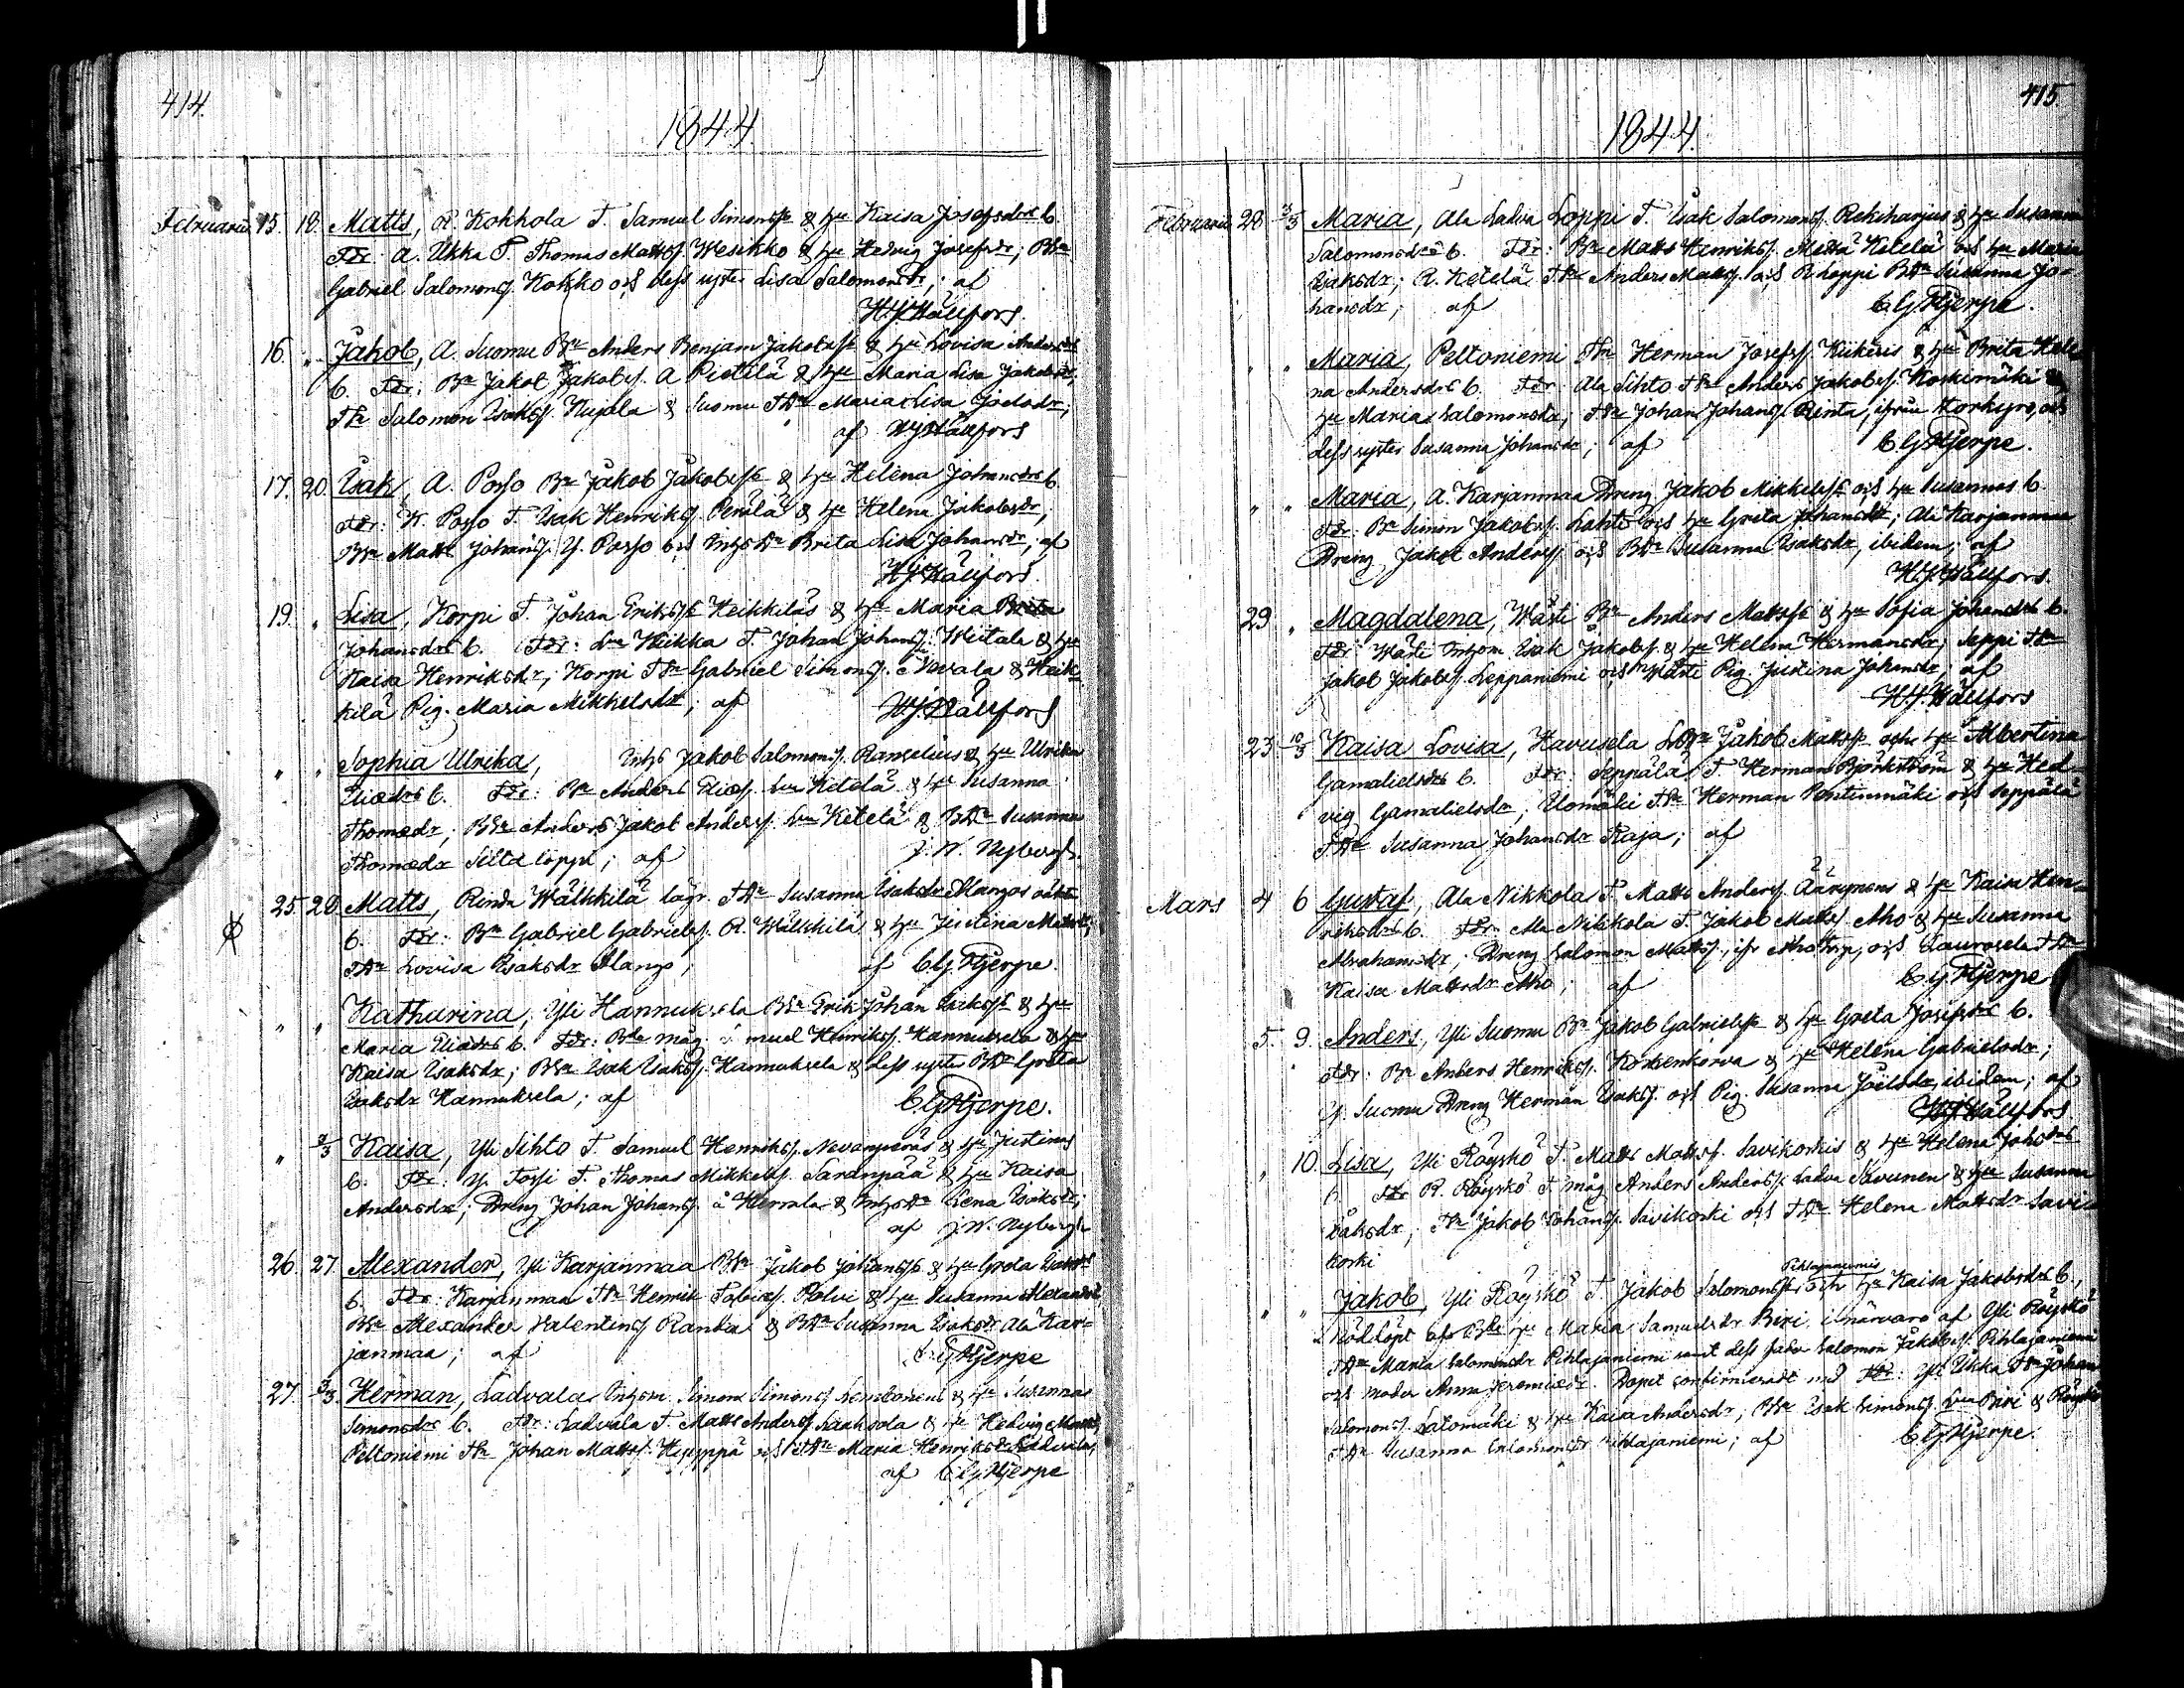 414.
1844.
Februarii 15. 18. Matts, R. Kohhola T. Samuel Simonss & hu Kaisa Josefsdrs b.
Fdr: A. Ukka T. Thomas Mattss. Wesikko & hu Hedvig Josefsdr; BSn
Gabriel Salomonss. Kokko och dess syster Lisa Salomonsdr; af
H.J. Hällfors.
16. " Jakob, A. Suomu Bn Anders Benjam Jakobss & hu Lovisa Andersdrs
b. Fdr: Bn Jakob Jakobss. A Pietilä & hu Maria Lisa Jakobsdr;
TSn Salomon Isakss. Kujala & Suomu TDr Maria Lisa Joelsdr;
af HJHällfors
17. 20. Isak, A. Posso Bn Jakob Jakobss & hu Helena Johansdrs b.
Fdr: K. Posso T. Isak Henrikss. Penilä & hu Helena Jakobsdr;
BSn Matts Johanss. Y. Posso och Inhs Dr Brita Lisa Johansdr; af
H.J. Hällfors.
19. " Lisa, Korpi T. Johan Erikss Heikkiläs & hu Maria Brita
Johansdrs b. Fdr: Heikka T. Johan Johanss. Wiitala & hu
Kaisa Henriksdr; Korpi TSn Gabriel Simonss. Nevala & Heik-
kilä Pig. Maria Mikkelsdr; af H.J. Hällfors
" " Sophia Ulrika, Inhs Jakob Salomonss. Ranselius & hu Ulrika
Eliædrs b. Fdr: Bn Anders Eliæs. Ketelä & hu Susanna
Thomædr; BSn Anders Jakob Anderss. Ketelä & BDr Susanna
Thomædr Siltaloppi; af J.W. Nybergh.
25. 28. Matts, Rinda Wälkkilä lägr. TDr Susanna Isaksdr Mangs oäkta
b. Fdr: Bn Gabriel Gabrielss. R. Wälkkilä & hu Justina Mattsdr;
TDr Lovisa Isaksdr Mangs; af CGHjerpe.
" " Katharina, Yli Hannuksela BSn Erik Johan Isakss & hu
Maria Eliædrs b. Fdr: Bde måg Samuel Henrikss. Hannuksela & hu
Kaisa Isaksdr; BSn Isak Isakss. Hannuksela & dess syster BDr Greta
Isaksdr Hannuksela; af CGHjerpe.
" 2/3 Kaisa, Yli Sihto T. Samuel Henrikss. Nevanperäs & hu Justinas
b. Fdr: Y. Torsti T. Thomas Mikkelss. Saranpää & hu Kaisa
Andersdr; Dreng Johan Johanss. å Herrala & Inhs Dr Lena Isaksdr;
af J.W. Nybergh
26. 27. Alexander, Yli Karjanmaa BSn Jakob Johanss & hu Greta Isaksdrs
b. Fdr: Karjanmaa TSn Henrik Tobiæs. Polvi & hu Susanna Alexandersdr
BSn Alexander Valentinss Ranta & BDr Susanna Isaksdr Ala Kar-
janmaa; af CGHjerpe
27. 3/3. Herman, Ladvala Inhysn. Simon Simonss Lemboniemi & hu Susannas
Simonsdrs b. Fdr: Ladvala T. Matts Anderss Laahsola & hu Hedvig Mattsdr;
Peltoniemi TSn Johan Mattss. Hyyppä och TDr Maria Henriksdr Ladvala;
af CGHjerpe
415.
1844.
Februarii 28. 3/3 Maria, Ala Ladva Loppi T. Isak Salomonss. Rekiharjus & hu Susanna
Salomonsdrs b. Fdr: Bn Matts Henrikss. Mettä Ketelä och hu Maria
Isaksdr; R. Ketelä TSn Anders Mattss. och R. Loppi BDr Susanna Jo-
hansdr; af CGHjerpe.
" " Maria, Peltoniemi TSn Herman Josefss. Kiikeris & hu Brita Hele-
na Andersdrs b. Fdr: Ala Sihto TSn Anders Jakobss. Koskimäki &
hu Maria Salomonsdr; TSn Johan Johanss. Rinta, ifrån Storkyro, och
dess syster Susanna Johansdr; af CGHjerpe.
" " Maria, A. Karjanmaa Dreng Jakob Mikkelss och hu Susannas b.
Fdr: Bn Simon Jakobss. Lahti och hu Greta Johansdr; Ala Karjanmaa
Dreng Jakob Anderss och BDr Susanna Isaksdr, ibidem; af
H.J. Hällfors.
29. " Magdalena, Wästi Bn Anders Mattss & hu Sofia Johansdrs b.
Fdr: Wästi Inhysn. Isak Jakobss. & hu Helena Hermansdr; Seppi TSn
Jakob Jakobss. Leppaniemi och Wästi Pig. Justina Johansdr; af
H.J. Hällfors
23. 10/3 Kaisa Lovisa, Havusela Jakob Mattss och hu Albertina
Gamalielsdrs b. Fdr: Seppälä T. Herman Björkström & hu Hed-
vig Gamalielsdr; Uomäki TSn Herman Pentinmäki och Seppälä
TDr Susanna Johansdr Raja; af
Mars 4 6 Gustaf, Ala Nikkola T. Matts Anderss. Äärynens & hu Kaisa Hen-
riksdrs b. Fdr: Ala Nikkola T. Jakob Mattss. Aho & hu Susanna
Abrahamsdr; Dreng Salomon Mattss., ifr Aho Torp, och Laurosela TDr
Kaisa Mattsdr Aho; af CGHjerpe
5. 9. Anders, Yli Suomu Bn Jakob Gabrielss & hu Greta Josefsdrs b.
Fdr: Bn Anders Henrikss. Koskenkorva & hu Helena Gabrielsdr;
Y. Suomu Dreng Herman Isakss. och Pig. Susanna Joëlsdr, ibidem; af
HJHällfors.
" 10. Lisa, Yli Röyskö T. Matts Mattss. Savikoskis & hu Helena Johsdrs
b. Fdr R. Röyskö T. måg Anders Anderss. Ladva Savunen & hu Susanna
Isaksdr; TSn Jakob Johanss. Savikoski och TDr Helena Mattsdr Savi-
koski
" " Jakob, Yli Röyskö T. Jakob Salomonss Pihlajaniemis och hu Kaisa Jakobsdrs b.,
Nöddöpt af Bde hu Maria Samuelsdr Biri, i närvaro af Yli Röyskö
TDr Maria Salomonsdr Pihlajaniemi samt dess fader Salomon Jakobss. Pihlajaniemi
och moder Anna Jeremiædr. Dopet confirmeradt med Fdr: Yli Ukka TSn Johan
Salomonss. Latomäki & hu Kaisa Andersdr; BSn Isak Simonss. Biri & Röyskö
TDr Susanna Salomonsdr Pihlajaniemi; af CGHjerpe.